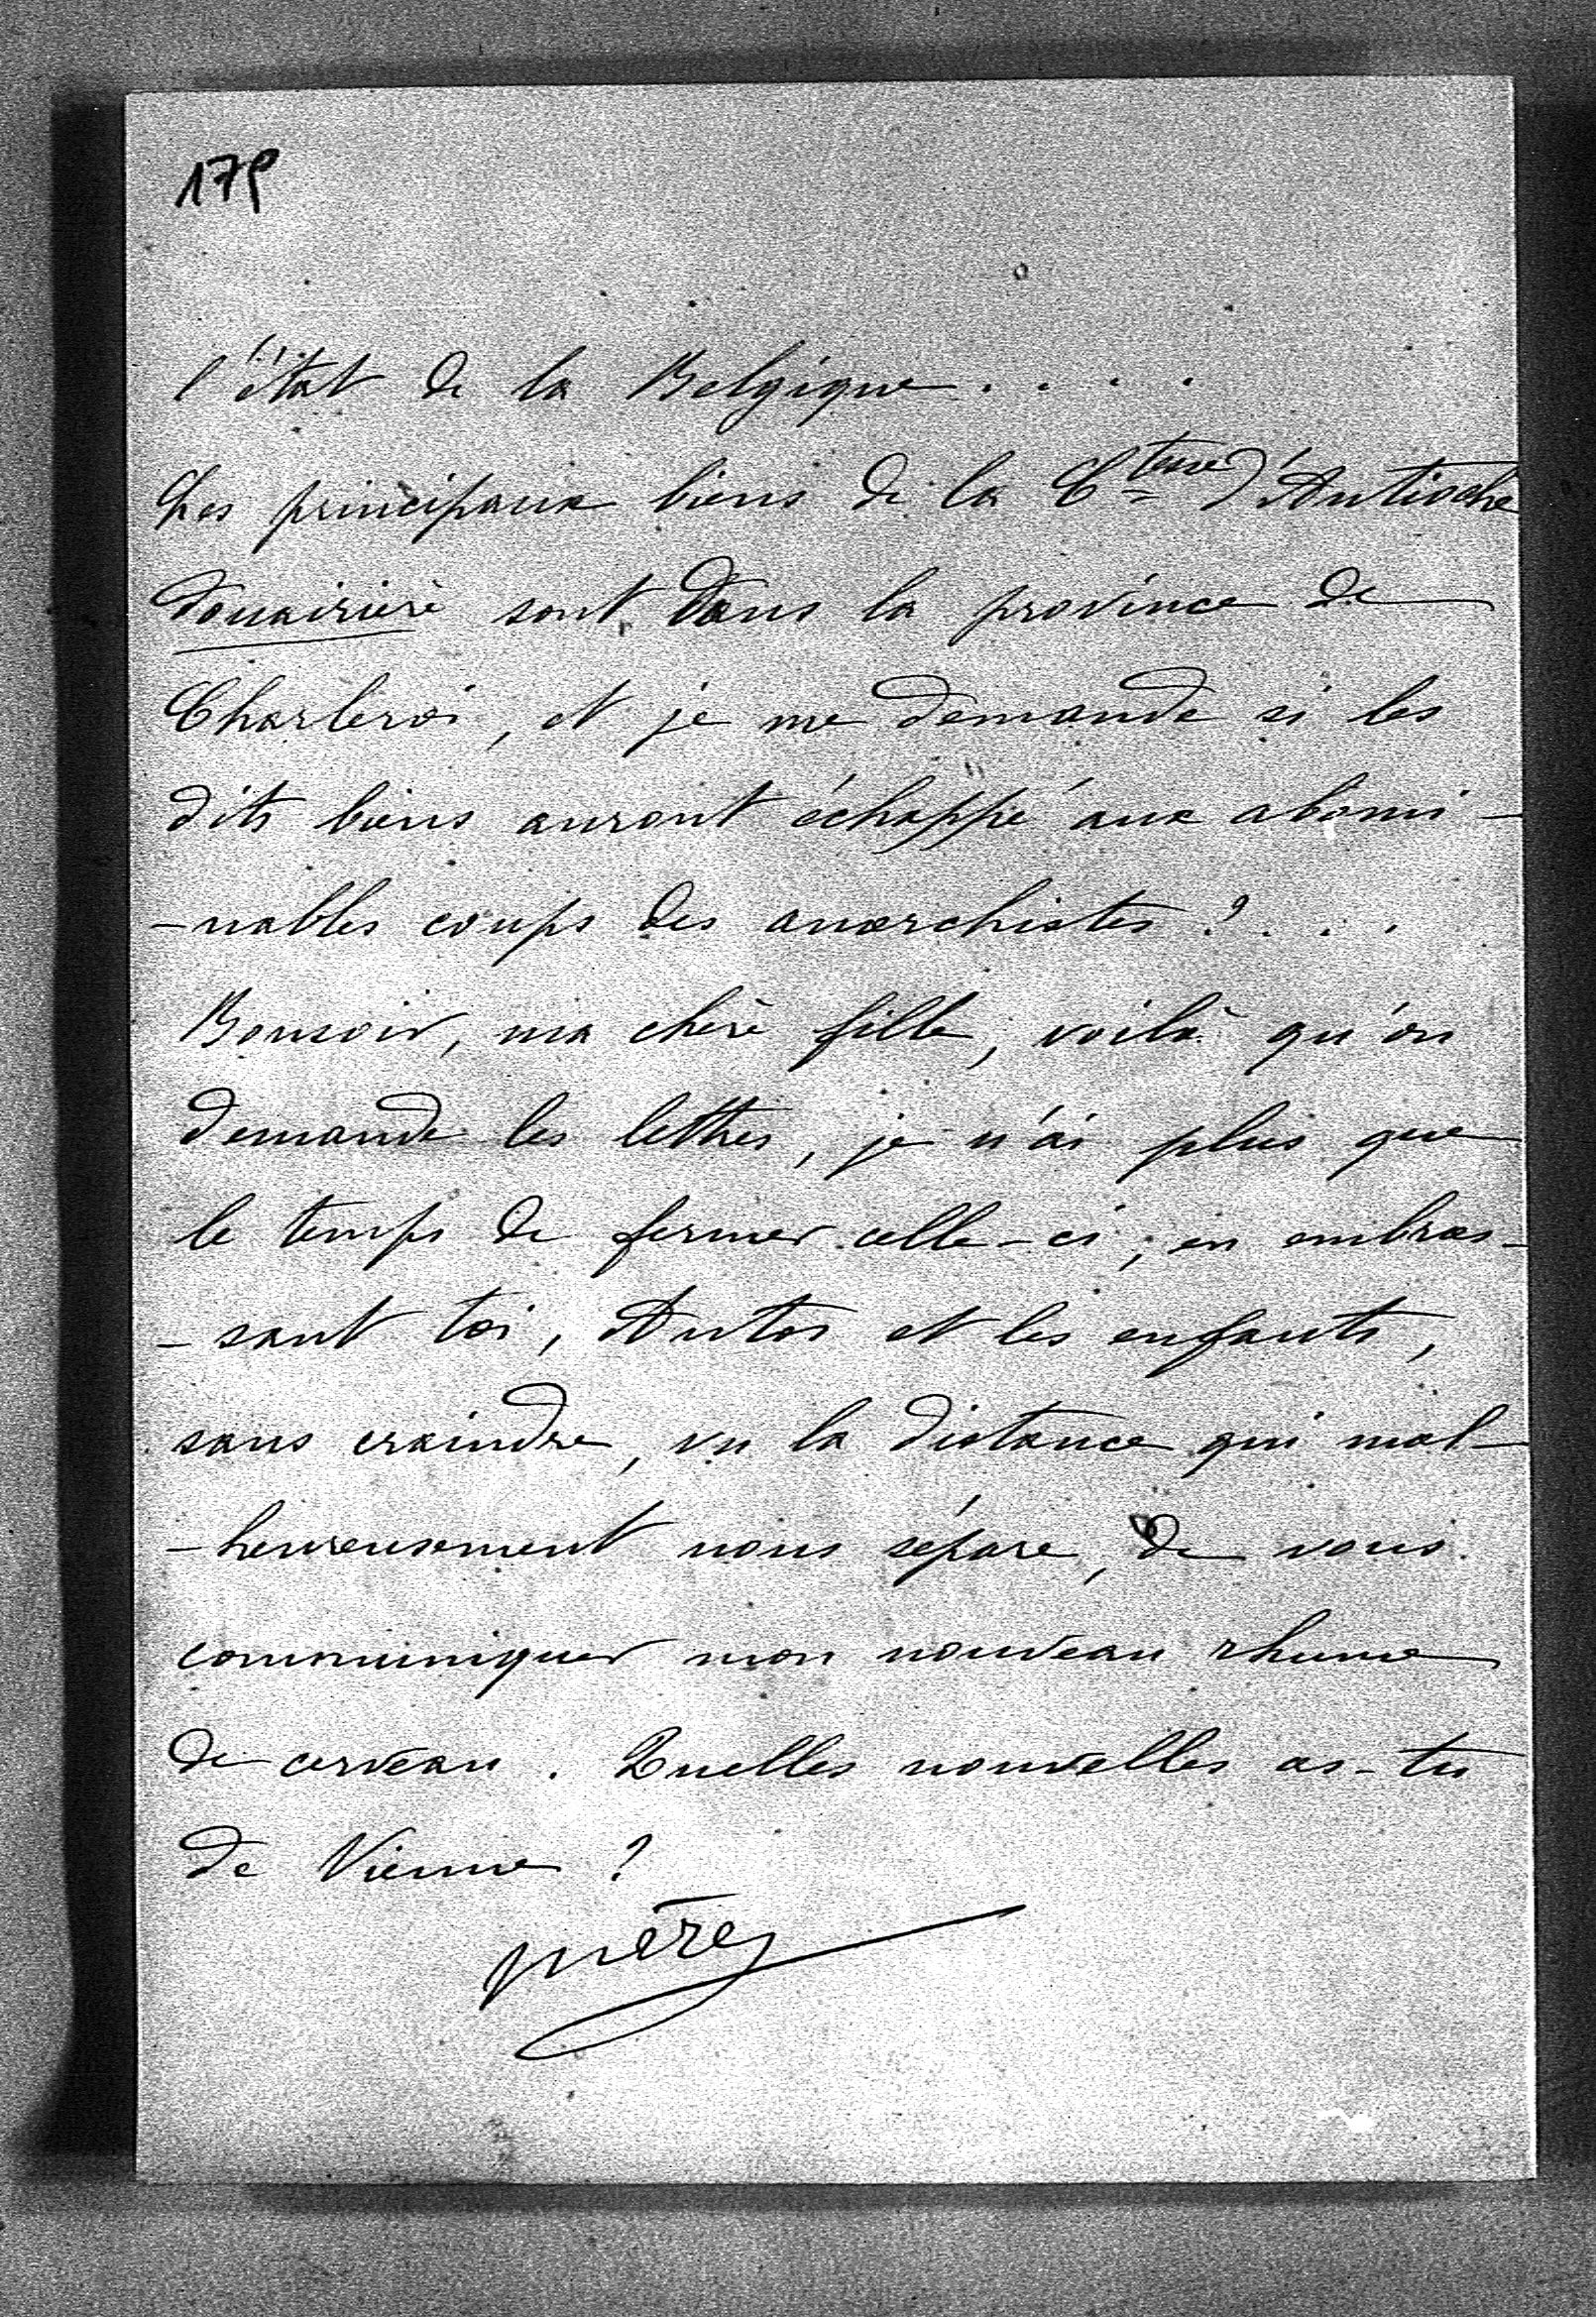 179
l'état de la Belgique . . . .
Les principaux biens de la Ctesse d'Antioche
douairière sont dans la province de
Charleroi, et je me demande si les
dits biens auront échappé aux abomi-
-nables coups des anarchistes ? . . .
Bonsoir, ma chère fille, voilà qu'on
demande les lettres, je n'ai plus que
le temps de fermer celle-ci, en embras-
-sant toi, Antos et les enfants,
sans craindre, vu la distance qui mal-
-heureusement nous sépare, de vous
communiquer mon nouveau rhume
de cerveau. Quelles nouvelles as-tu
de Vienne ?
mère